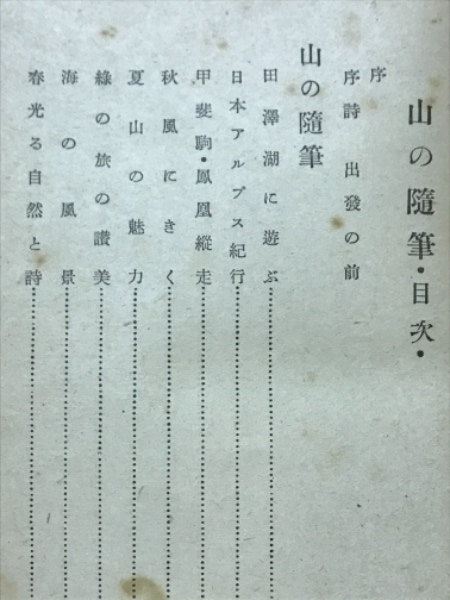 山の隨筆・目次・
序
序詩 出發の前
山の隨筆
田澤湖に遊ぶ
日本アルプス紀行
甲斐駒・鳳凰縱走
秋風にきく
夏山の魅力
綠の旅の讃美
海の風景
春光る自然と詩